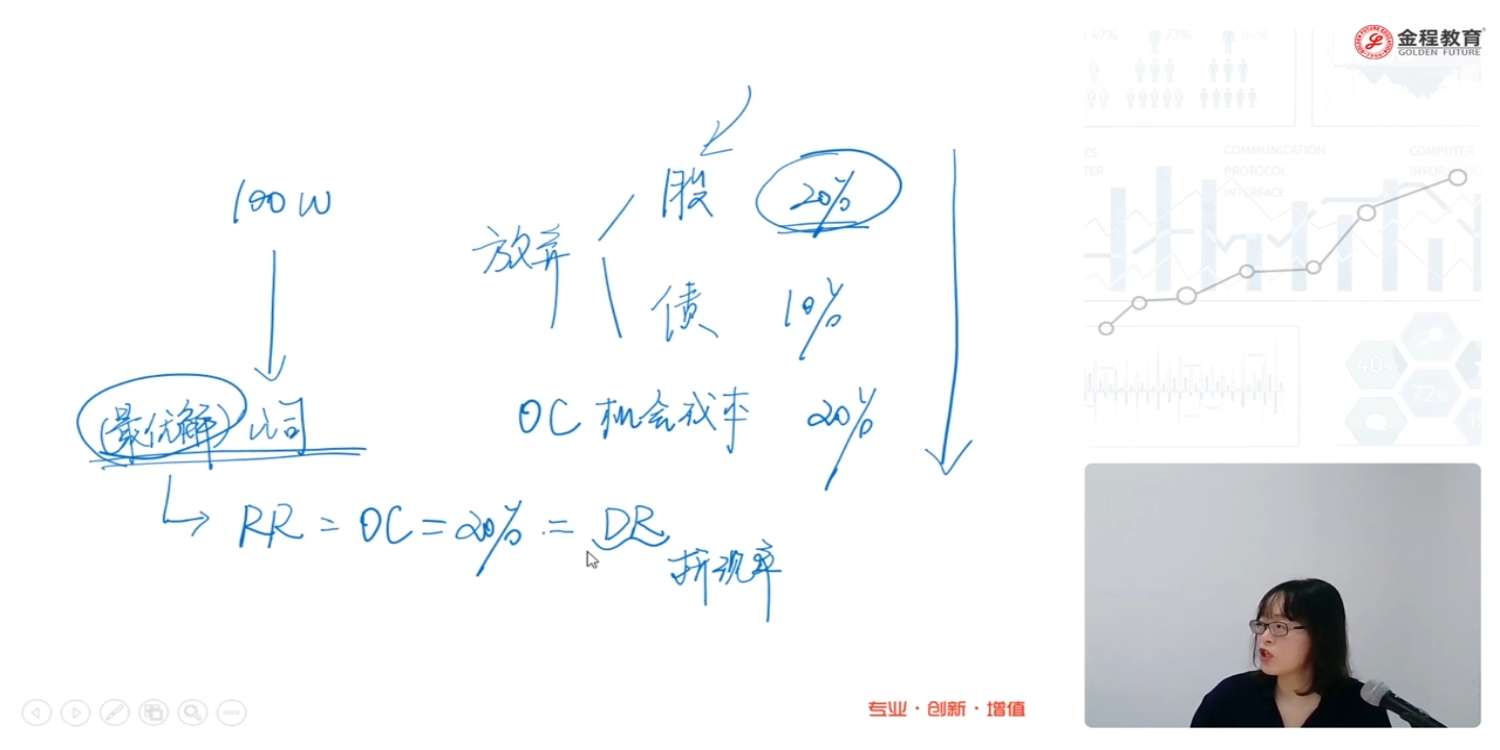 金程教育
GOLDEN FUTURE
47%
23%
COMMUNICATION
PROTOCOL
INTERFACE
COMPUTER
100W
放弃
股 20%
债 10%
OC 机会成本 20%
(最优解)公司
RR = OC = 20% = DR
折现率
40%
72%
专业·创新·增值